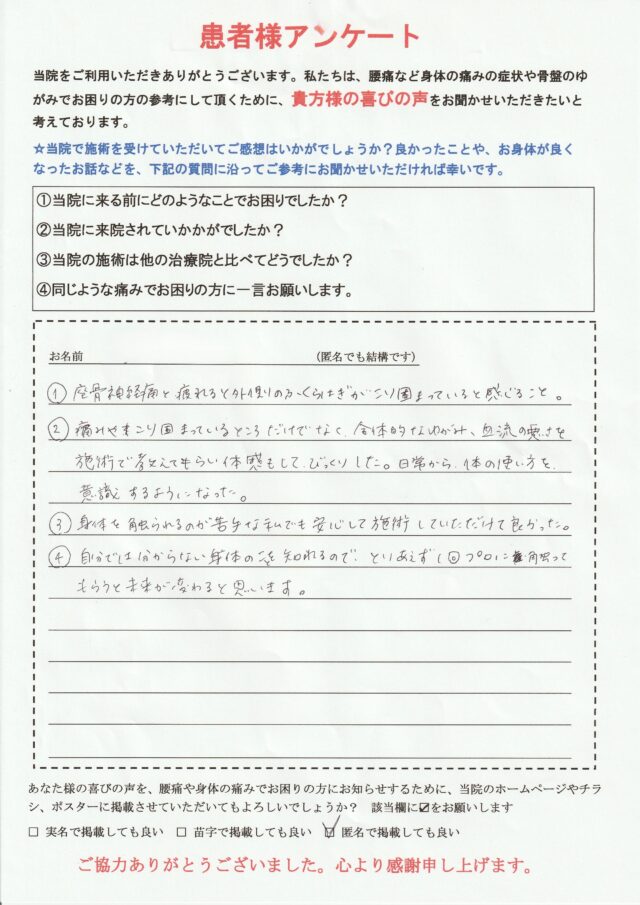 患者様アンケート
当院をご利用いただきありがとうございます。私たちは、腰痛など身体の痛みの症状や骨盤のゆ
がみでお困りの方の参考にして頂くために、貴方様の喜びの声をお聞かせいただきたいと
考えております。
☆当院で施術を受けていただいてご感想はいかがでしょうか？良かったことや、お身体が良く
なったお話などを、下記の質問に沿ってご参考にお聞かせいただければ幸いです。
①当院に来る前にどのようなことでお困りでしたか？
②当院に来院されていかかがでしたか？
③当院の施術は他の治療院と比べてどうでしたか？
④同じような痛みでお困りの方に一言お願いします。
お名前 (匿名でも結構です)
① 座骨神経痛と疲れると外側の方、ふくらはぎがこり固まっていると感じること。
② 痛みやすこり固まっているところだけでなく、全体的なゆがみ、血流の悪さを
施術で教えてもらい体感もして、びっくりした。日常から、体の使い方を
意識するようになった。
③ 身体を触られるのが苦手な私でも安心して施術していただけて良かった。
④ 自分では分からない身体の芯を知れるので、とりあえず1回プロに触って
もらうと未来が変わると思います。
あなた様の喜びの声を、腰痛や身体の痛みでお困りの方にお知らせするために、当院のホームページやチラ
シ、ポスターに掲載させていただいてもよろしいでしょうか？ 該当欄に☑をお願いします
□ 実名で掲載しても良い □ 苗字で掲載しても良い ☑ 匿名で掲載しても良い
ご協力ありがとうございました。心より感謝申し上げます。